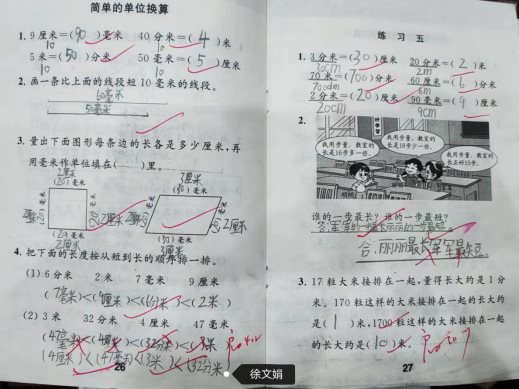 简单的单位换算
1. 9厘米=(90)毫米 40分米=(4)米
10 10
5米=(50)分米 50毫米=(5)厘米
10 10
2. 画一条比上面的线段短10毫米的线段。
60毫米
50毫米
3. 量出下面图形每条边的长各是多少厘米,再
用毫米作单位填在( )里。
2厘米 3厘米
(20)毫米 (30)毫米
2厘米 (20)毫米 (20)毫米 2厘米 2厘米 (20)毫米 (20)毫米 2厘米
(20)毫米 (30)毫米
2厘米 3厘米
4. 把下面的长度按从短到长的顺序排一排。
(1) 6分米 2米 7毫米 9厘米
(7毫米)<(9厘米)<(6分米)<(2米)
(2) 3米 32分米 4厘米 47毫米
(4厘米)<(47毫米)<(3米)<(32分米)
26
练习五
1. 3分米=(30)厘米 20分米=(2)米
30cm 2m
70米=(700)分米 60厘米=(6)分米
700dm 6m
2分米=(20)厘米 90毫米=(9)厘米
20cm 9cm
2.
我用步量,教室的
长是16步多一些。
我用步量,教室的
长是18步少一些。
我用步量,教室的
长正好15步。
谁的一步最长?谁的一步最短?
答:丽丽最长军军最短。
3. 17粒大米接排在一起,量得长大约是1分
米,170粒这样的大米接排在一起的长大约
是(1)米,1700粒这样的大米接排在一起
的长大约是(10)米。
27
徐文娟